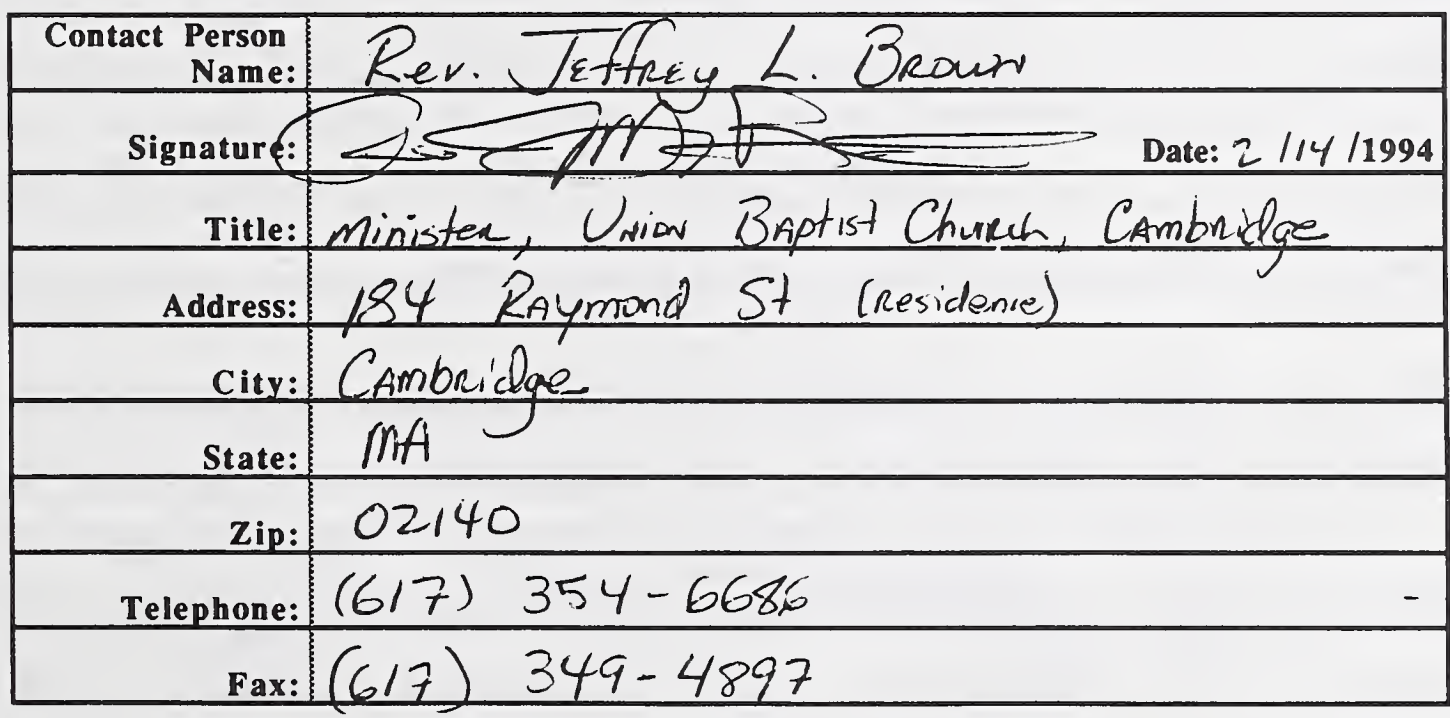 Contact Person
Name: Rev. Jeffrey L. Brown
Signature: Date: 2/14/1994
Title: Minister, Union Baptist Church, Cambridge
Address: 184 Raymond St (Residence)
City: Cambridge
State: MA
Zip: 02140
Telephone: (617) 354-6686 -
Fax: (617) 349-4897